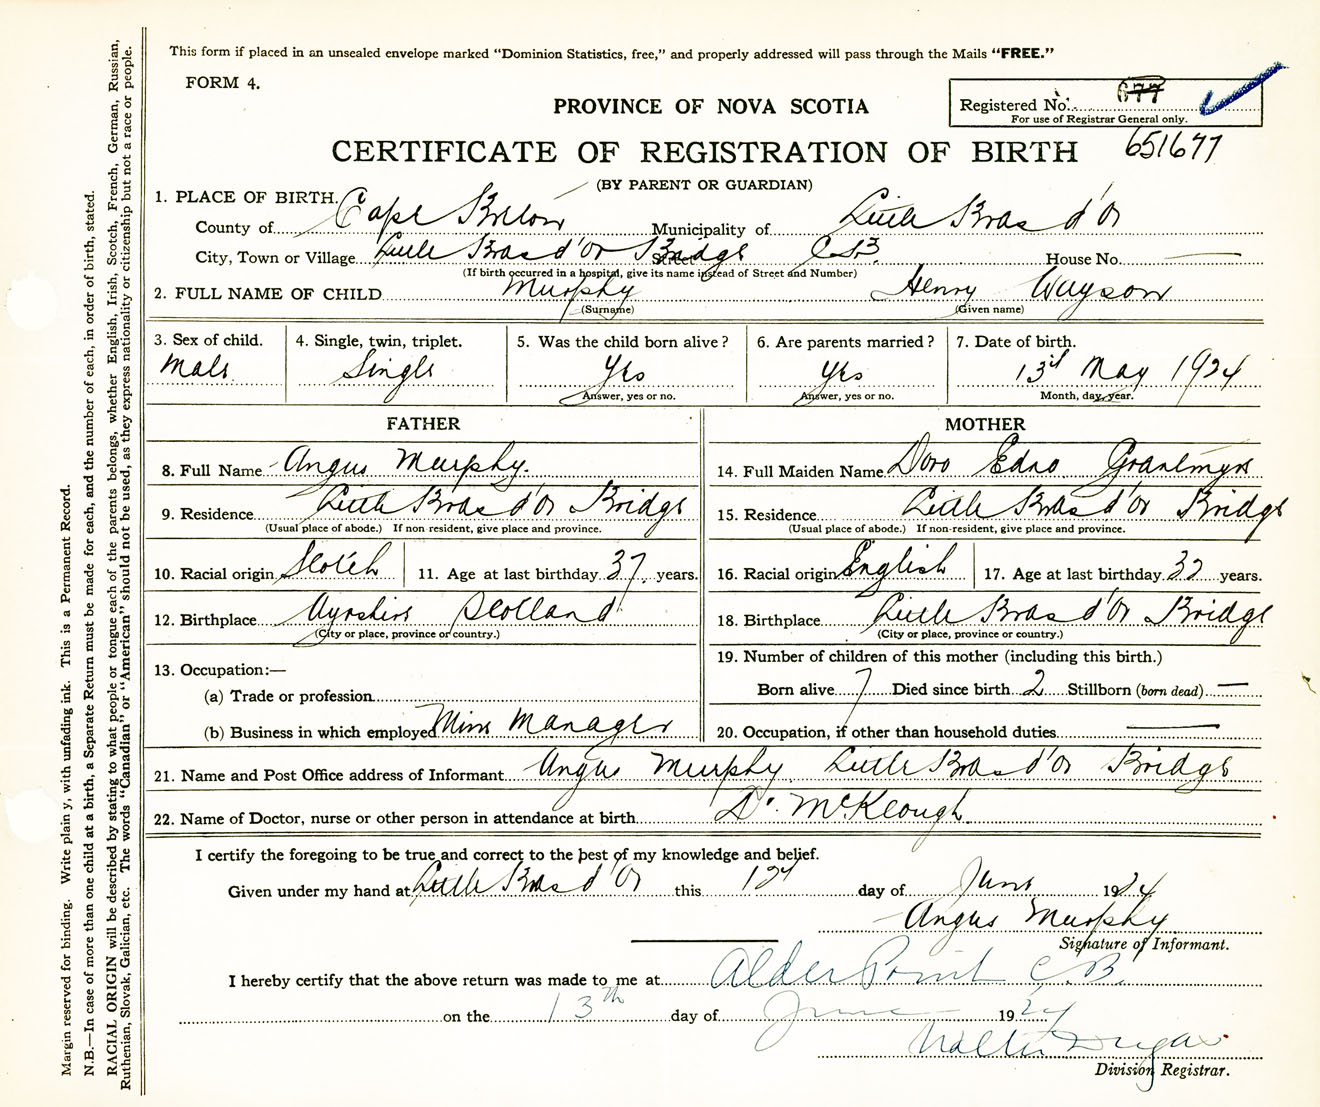 This form if placed in an unsealed envelope marked "Dominion Statistics, free," and properly addressed will pass through the Mails "FREE."
FORM 4.
Registered No. 677
For use of Registrar General only.
PROVINCE OF NOVA SCOTIA
651677
CERTIFICATE OF REGISTRATION OF BIRTH
(BY PARENT OR GUARDIAN)
1. PLACE OF BIRTH.
County of Cape Breton Municipality of Little Bras d'Or
City, Town or Village Little Bras d'Or Bridge Street C.B. House No. —
(If birth occurred in a hospital, give its name instead of Street and Number)
2. FULL NAME OF CHILD Murphy Henry Wayson
(Surname) (Given name)
3. Sex of child. 4. Single, twin, triplet. 5. Was the child born alive? 6. Are parents married? 7. Date of birth.
Male Single Yes Yes 13d May 1924
Answer, yes or no. Answer, yes or no. Month, day, year.
FATHER MOTHER
8. Full Name Angus Murphy. 14. Full Maiden Name Edna
9. Residence Little Bras d'Or Bridge 15. Residence Little Bras d'Or Bridge
(Usual place of abode.) If non resident, give place and province. (Usual place of abode.) If non-resident, give place and province.
10. Racial origin Scotch 11. Age at last birthday 37 years. 16. Racial origin English 17. Age at last birthday years.
12. Birthplace Ayrshire Scotland 18. Birthplace Little Bras d'Or Bridge
(City or place, province or country.) (City or place, province or country.)
13. Occupation:— 19. Number of children of this mother (including this birth.)
(a) Trade or profession Born alive 7 Died since birth 2 Stillborn (born dead) —
(b) Business in which employed Mine Manager 20. Occupation, if other than household duties —
21. Name and Post Office address of Informant Angus Murphy Little Bras d'Or Bridge
22. Name of Doctor, nurse or other person in attendance at birth Dr. McKeough.
I certify the foregoing to be true and correct to the best of my knowledge and belief.
Given under my hand at Little Bras d'Or this day of June 1924
Angus Murphy
Signature of Informant.
I hereby certify that the above return was made to me at Alder Point C.B.
on the 13th day of June 1924
Walter
Division Registrar.
Margin reserved for binding. Write plain y, with unfading ink. This is a Permanent Record.
N.B.—In case of more than one child at a birth, a Separate Return must be made for each, and the number of each, in order of birth, stated.
RACIAL ORIGIN will be described by stating to what people or tongue each of the parents belongs, whether English, Irish, Scotch, French, German, Russian,
Ruthenian, Slovak, Galician, etc. The words "Canadian" or "American" should not be used, as they express nationality or citizenship but not a race or people.